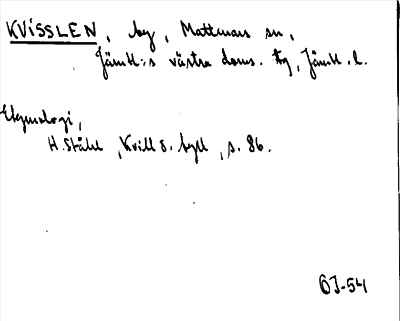 KVISSLEN, by, Mattmars sn,
Jämtl:s västra doms. fg, Jämtl. l.
Etymologi,
H. Ståhl, Kvill o. byll, s. 86.
BJ-54